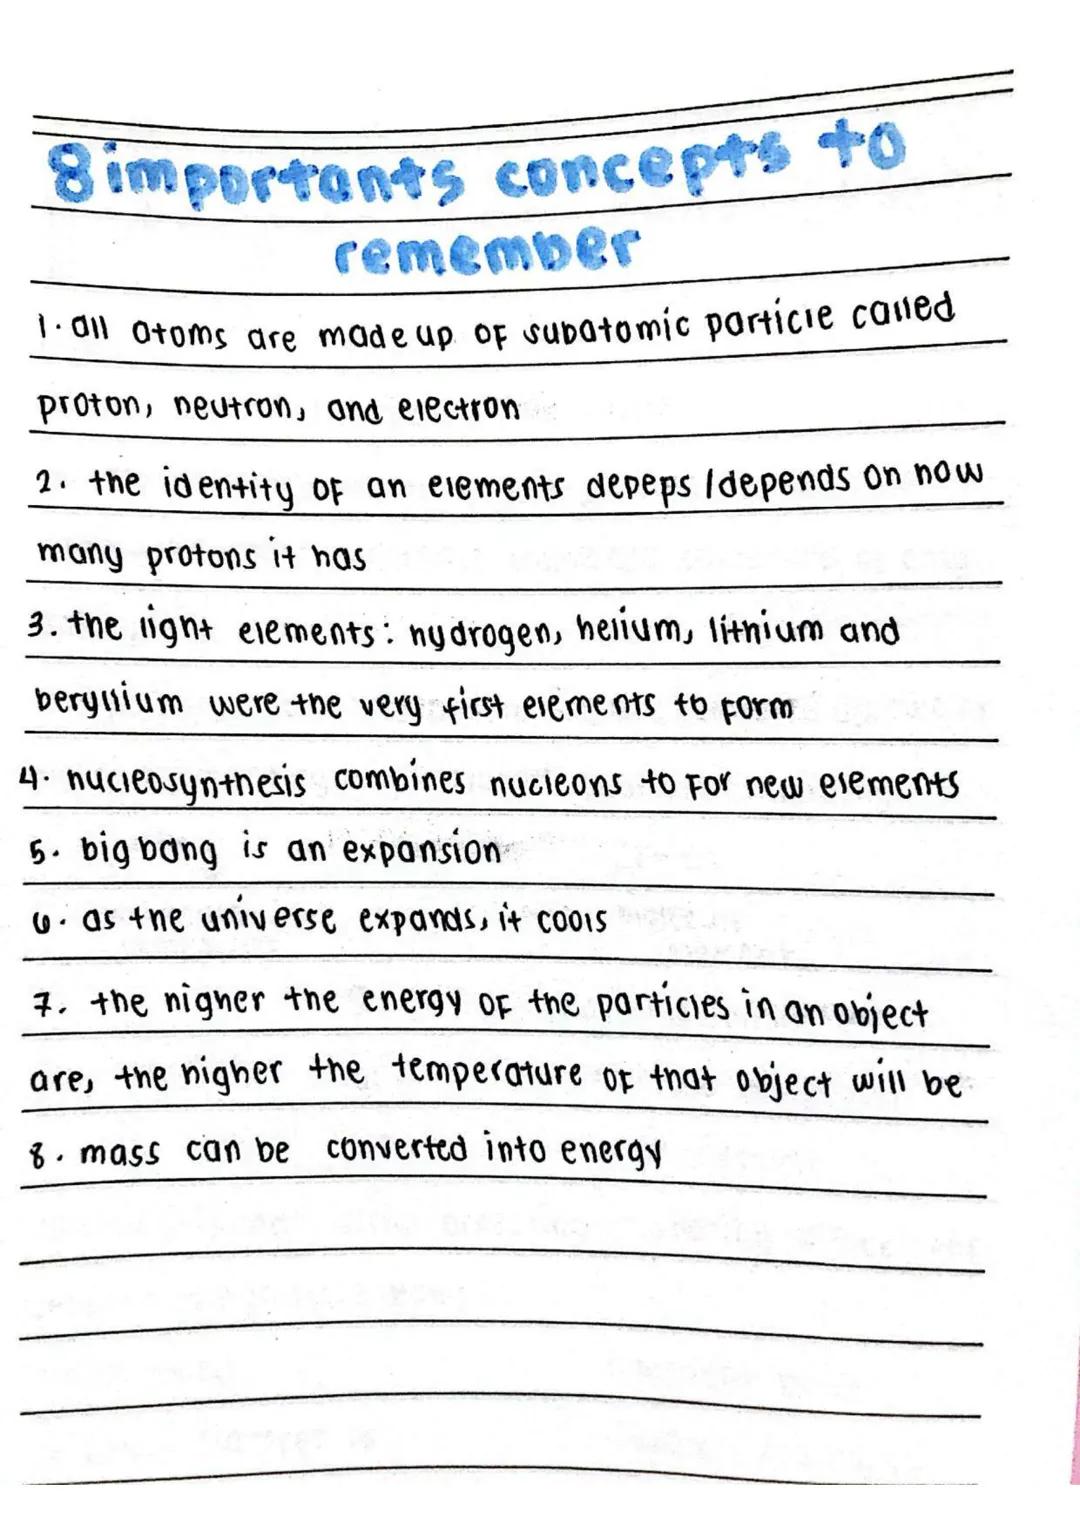 8 importants concepts to
remember
1. all atoms are made up of subatomic particle called
proton, neutron, and electron
2. the identity of an elements depeps / depends on how
many protons it has
3. the light elements: hydrogen, helium, lithium and
beryllium were the very first elements to form
4. nucleosynthesis combines nucleons to for new elements
5. big bang is an expansion
6. as the universe expands, it cools
7. the higher the energy of the particles in an object
are, the higher the temperature of that object will be
8. mass can be converted into energy